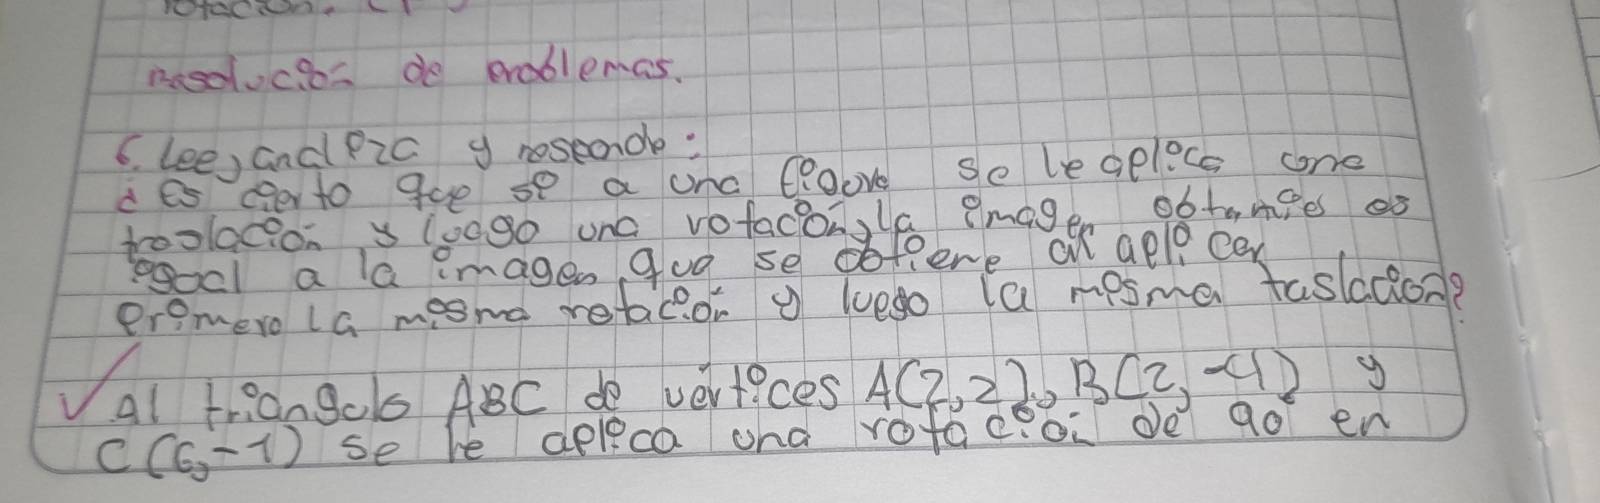 rotación.
resolución de problemas.
6. Lee, analiza y responde:
¿ Es cierto que si a una figura se le aplica una
traslación y luego una rotación, la imagen obtenida es
igual a la imagen que se obtiene al aplicar
primero la misma rotación y luego la misma traslación?
✓ Al triángulo ABC de vértices A(2,2), B(2,-4) y
C(6,-1) se le aplica una rotación de 90 en